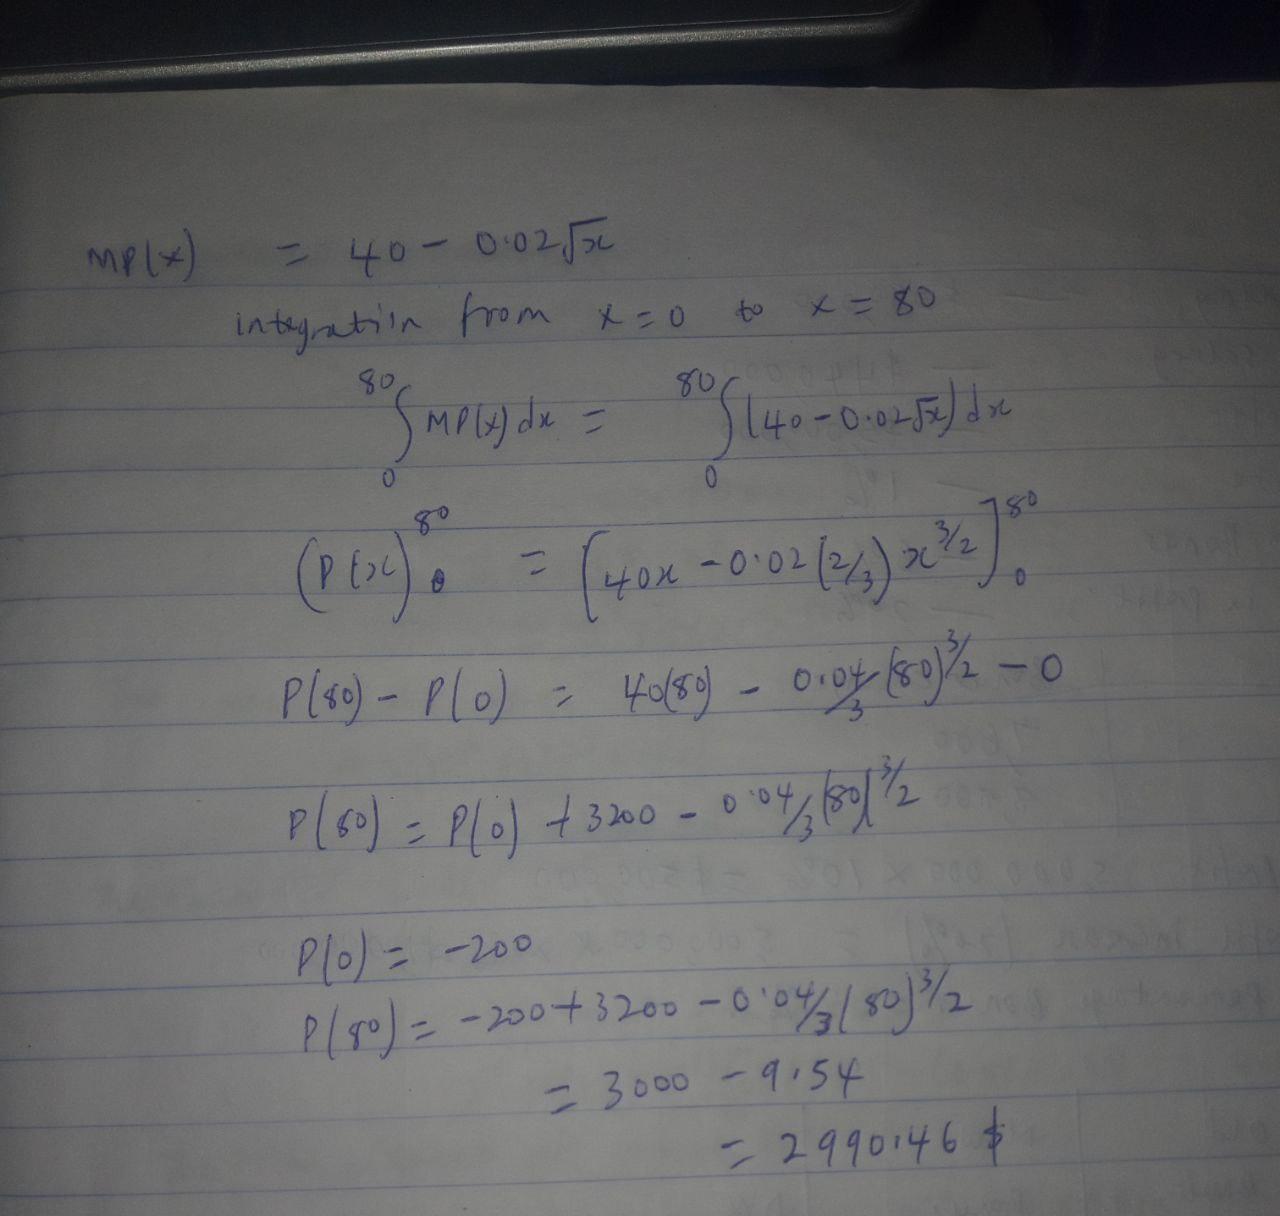 MP(x) = 40 - 0.02√x
integration from x = 0 to x = 80
80∫0 MP(x) dx = 80∫0 (40 - 0.02√x) dx
(P(x)) 80 0 = [40x - 0.02 (2/3) x^3/2] 80 0
P(80) - P(0) = 40(80) - 0.04/3 (80)^3/2 - 0
P(80) = P(0) + 3200 - 0.04/3 (80)^3/2
P(0) = -200
P(80) = -200 + 3200 - 0.04/3 (80)^3/2
= 3000 - 9.54
= 2990.46 $